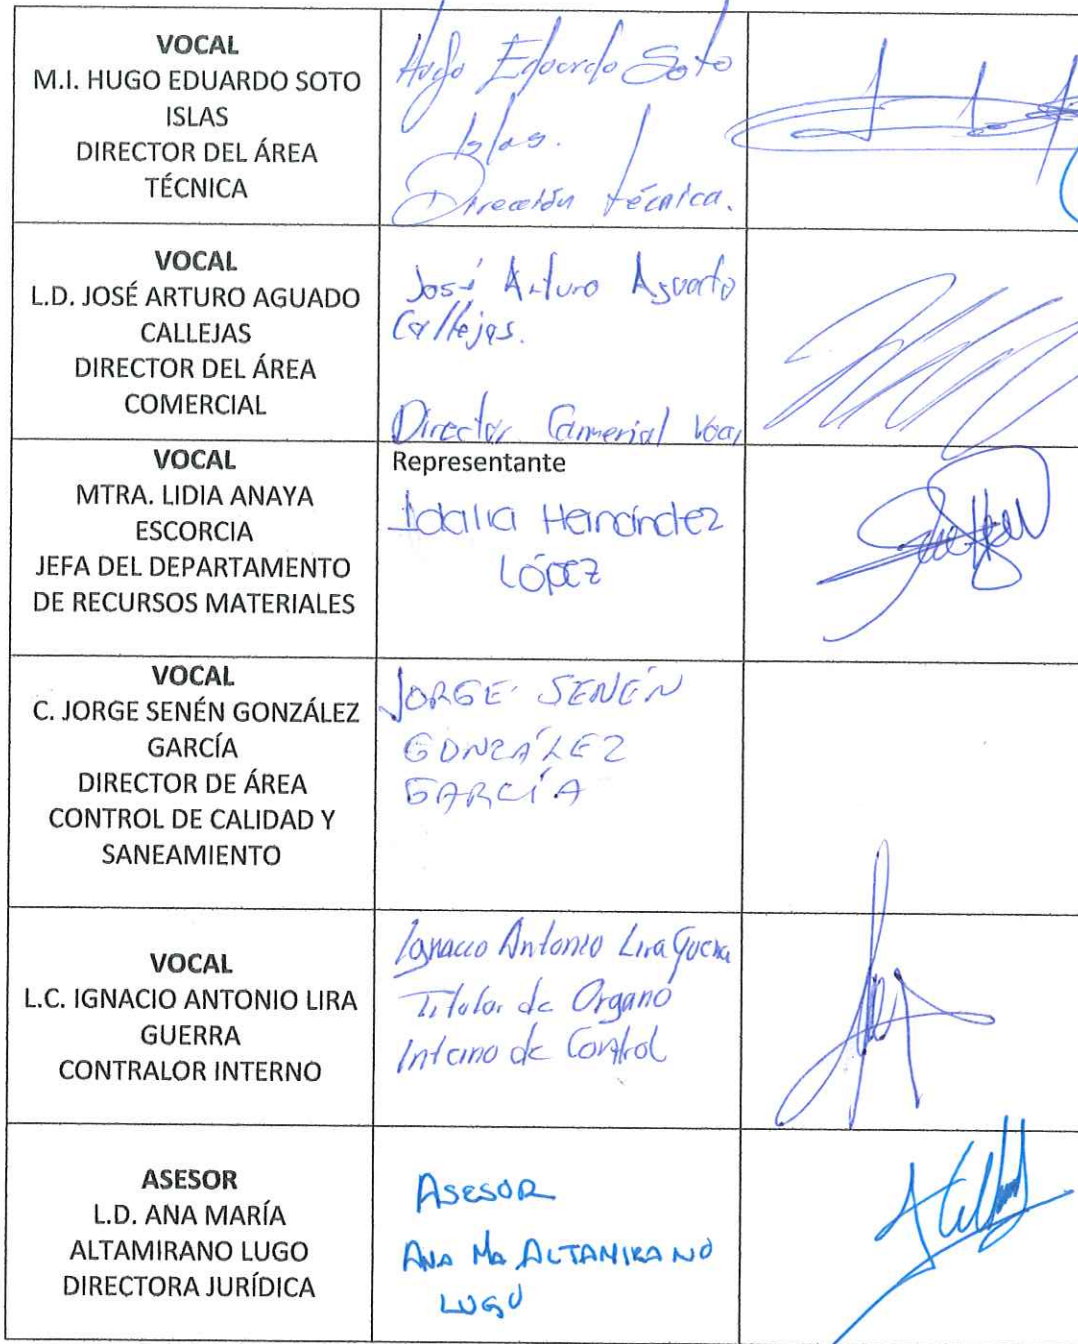 VOCAL
M.I. HUGO EDUARDO SOTO
ISLAS
DIRECTOR DEL ÁREA
TÉCNICA
Hugo Eduardo Soto
Islas.
Dirección técnica.
VOCAL
L.D. JOSÉ ARTURO AGUADO
CALLEJAS
DIRECTOR DEL ÁREA
COMERCIAL
José Arturo Aguado
Callejas.
Director Comercial Vocal
VOCAL
MTRA. LIDIA ANAYA
ESCORCIA
JEFA DEL DEPARTAMENTO
DE RECURSOS MATERIALES
Representante
Idalia Hernández
López
VOCAL
C. JORGE SENÉN GONZÁLEZ
GARCÍA
DIRECTOR DE ÁREA
CONTROL DE CALIDAD Y
SANEAMIENTO
JORGE SENÉN
GONZÁLEZ
GARCÍA
VOCAL
L.C. IGNACIO ANTONIO LIRA
GUERRA
CONTRALOR INTERNO
Ignacio Antonio Lira Guerra
Titular de Organo
Interno de Control
ASESOR
L.D. ANA MARÍA
ALTAMIRANO LUGO
DIRECTORA JURÍDICA
ASESOR
ANA Ma ALTAMIRANO
LUGO